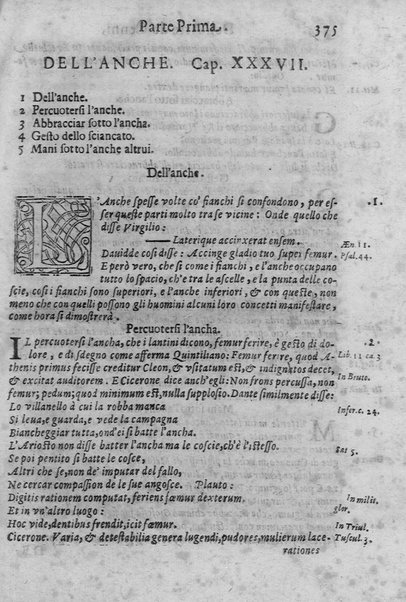 Parte Prima. 375
DELL'ANCHE. Cap. XXXVII.
1 Dell'anche.
2 Percuotersi l'ancha.
3 Abbracciar sotto l'ancha.
4 Gesto dello sciancato.
5 Mani sotto l'anche altrui.
Dell'anche.
L'Anche spesse volte co' fianchi si confondono, per es- 1.
ser queste parti molto tra se vicine: Onde quello che
disse Virgilio:
Laterique accinxerat ensem. Æn 11.
Dauidde così disse: Accinge gladio tuo super femur. Psal. 44.
E però vero, che sì come i fianchi, e l'anche occupano
tutto lo spacio, ch'e tra le ascelle, e la punta delle co-
scie, così i fianchi sono superiori, e l'anche inferiori, & con queste, non
meno che con quelli possono gli huomini alcuni loro concetti manifestare,
come hora si dimostrerà.
Percuotersi l'ancha.
IL percuotersi l'ancha, che i lantini dicono, femur ferire, è gesto di do- 2
lore, e di sdegno come afferma Quintiliano: Femur ferire, quod A- Lib. 11 ca 3
thenis primus fecisse creditur Cleon, & vsitatum est, & indignatos decet,
& excitat auditorem. E Cicerone dice anch'egli: Non frons percussa, non In Brute.
femur; pedum; quod minimum est, nulla supplosio. Dante similmente disse:
Lo villanello à cui la robba manca Infer. c. 24.
Si leua, e guarda, e vede la campagna
Biancheggiar tutta, ond'ei si batte l'ancha.
L'Ariosto non disse batter l'ancha ma le coscie, ch'è l'istesso.
Se poi pentito si batte le coscie, Sat 5.
Altri che se, non de' imputar del fallo,
Ne cercar compassion de le sue angosce. Plauto:
Digitis rationem computat, feriens fœmur dexterum. In milit.
Et in vn'altro luogo: glor.
Hoc vide, dentibus frendit, icit fœmur. In Trul.
Cicerone. Varia, & detestabilia genera lugendi, pudores, mulierum lace- Tuscul. 3.
rationes